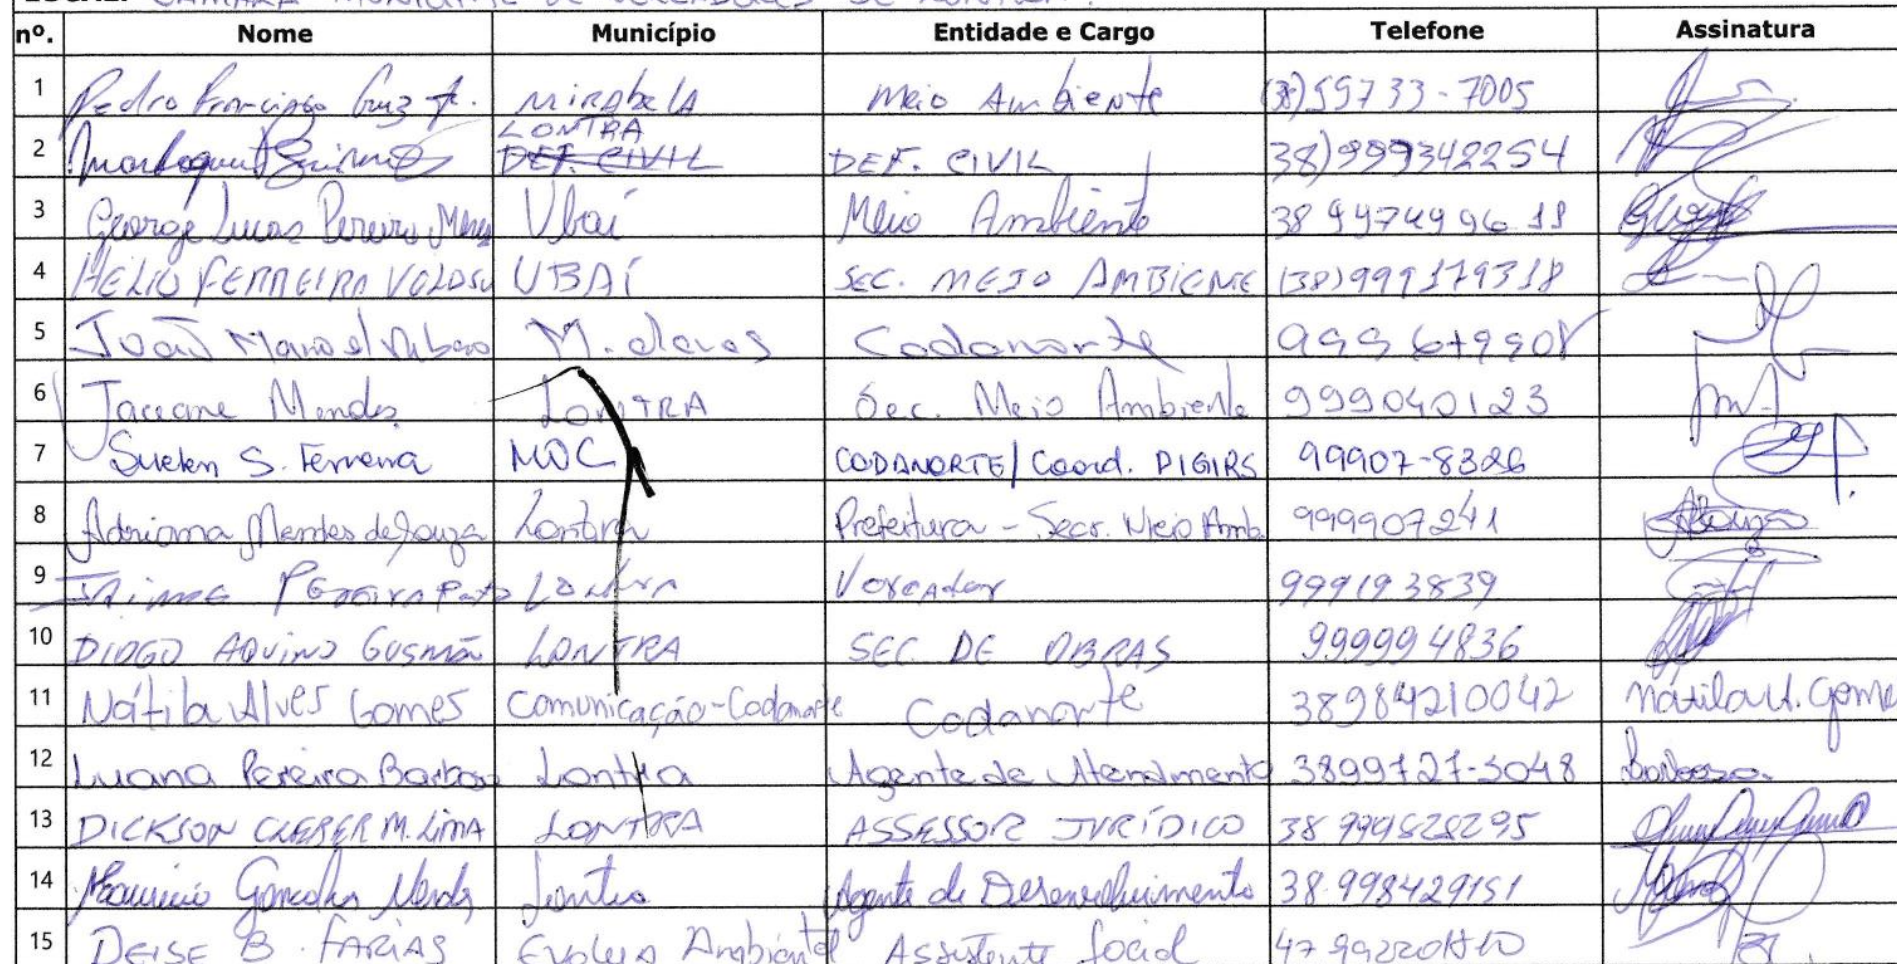 CÂMARA MUNICIPAL DE VEREADORES DE LONTRA.
nº. Nome Município Entidade e Cargo Telefone Assinatura
1 Pedro Francisco Cruz Jr. Mirabela Meio Ambiente (38)99733-7005
LONTRA
2 DEF. CIVIL DEF. CIVIL 38)999342254
3 George Lucas Pereira Ubaí Meio Ambiente 38 997499618
4 HELIO FERREIRA VELOSO UBAÍ SEC. MEIO AMBIENTE (38)999179318
5 João Manoel M. claros Codanorte
6 Jaceane Mendes LONTRA Sec. Meio Ambiente 999040123
7 Suelen S. Ferreira MOC CODANORTE/Coord. PIGIRS 99907-8326
8 Adriana Mendes de Souza Lontra Prefeitura - Secr. Meio Amb. 999907241
9 Jaime Pereira Lontra Vereador 999193839
10 DIOGO AQUINO GUSMÃO LONTRA SEC. DE OBRAS 999994836
11 Nátila Alves Gomes Comunicação-Codanorte Codanorte 38984210042 Nátila A. Gomes
12 Luana Pereira Barbosa Lontra Agente de Atendimento 3899127-3048 Barbosa
13 DICKSON CLEBER M. LIMA LONTRA ASSESSOR JURÍDICO 38 999828295
14 Mauricio Goncalves Mendes Lontra Agente de Desenvolvimento 38-998429151
15 DEISE B. FARIAS Evolua Ambiental Assistente Social